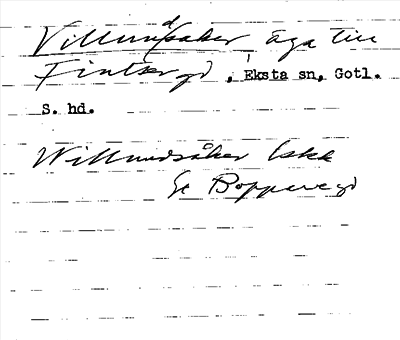 Villundsåker äga till
Fintergd, Eksta sn, Gotl.
S. hd.
Willmundsåker Lskr
St Boppevegd